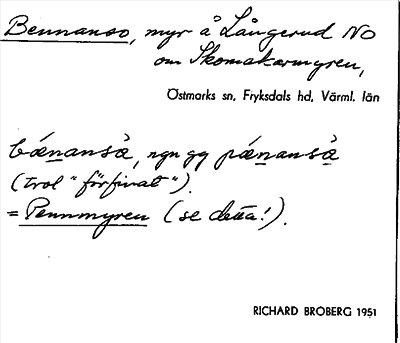 Bennanso, myr å Långerud NO
om Skomakarmyren,
Östmarks sn, Fryksdals hd, Värml. län
bænanså, ngn gg pænanså
(trol "förfinat").
= Pennmyren (se detta!).
RICHARD BROBERG 1951